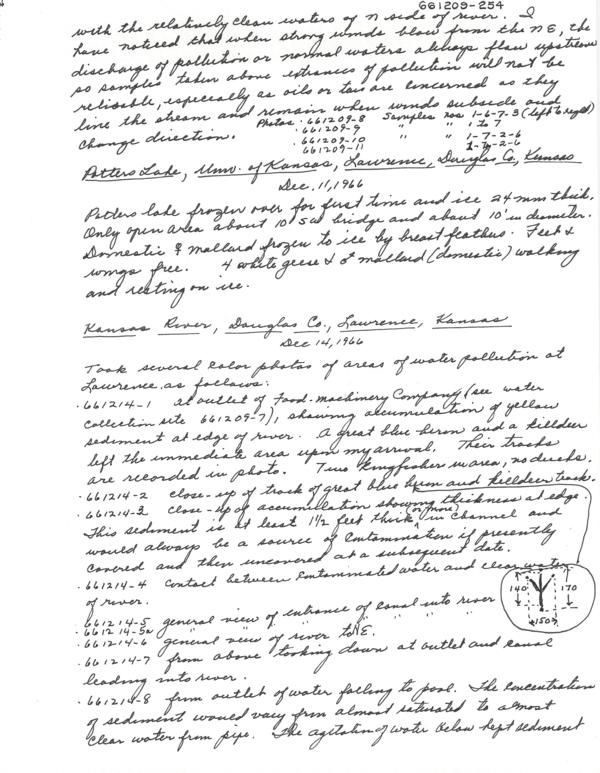 661209-254
with the relatively clean waters of N side of river. I
have noticed that when strong winds blow from the NE, the
discharge of pollution or normal waters always flow upstream
so samples taken above entrances of pollution will not be
reliable, especially as oils or tars are concerned as they
line the stream and remain when winds subside and
change direction.
Photos . 661209-8 Samples nos 1-6-7-3 (left to right)
. 661209-9 " " 1 to 7
. 661209-10 " " 1-7-2-6
661209-11 1-7-2-6
Potters Lake, Univ. of Kansas, Lawrence, Douglas Co., Kansas
Dec. 11, 1966
Potters lake frozen over for first time and ice 24 mm thick.
Only open area about 10' SW bridge and about 10' in diameter.
Domestic ♀ mallard frozen to ice by breast feathers. Feet &
wings free. 4 white geese & ♂ mallard (domestic) walking
and resting on ice.
Kansas River, Douglas Co., Lawrence, Kansas
Dec 14, 1966
Took several color photos of areas of water pollution at
Lawrence as follows:
. 661214-1 at outlet of Food-Machinery Company (see water
collection site 661209-7), showing accumulation of yellow
sediment at edge of river. A great blue heron and a killdeer
left the immediate area upon my arrival. Their tracks
are recorded in photo. Two kingfisher in area, no ducks.
. 661214-2 close-up of track of great blue heron and killdeer track.
. 661214-3 close-up of accumulation showing thickness at edge.
This sediment is at least 1½ feet thick (or more) in channel and
would always be a source of contamination if presently
covered and then uncovered at a subsequent date.
. 661214-4 contact between contaminated water and clear water
of river.
140 170
150
. 661214-5 general view of entrance of canal into river
. 661214-5a " " " " " "
. 661214-6 general view of river to E.
. 661214-7 from above looking down at outlet and canal
leading into river.
. 661214-8 from outlet of water falling to pool. The concentration
of sediment would vary from almost saturated to almost
clear water from pipe. The agitation of water below kept sediment